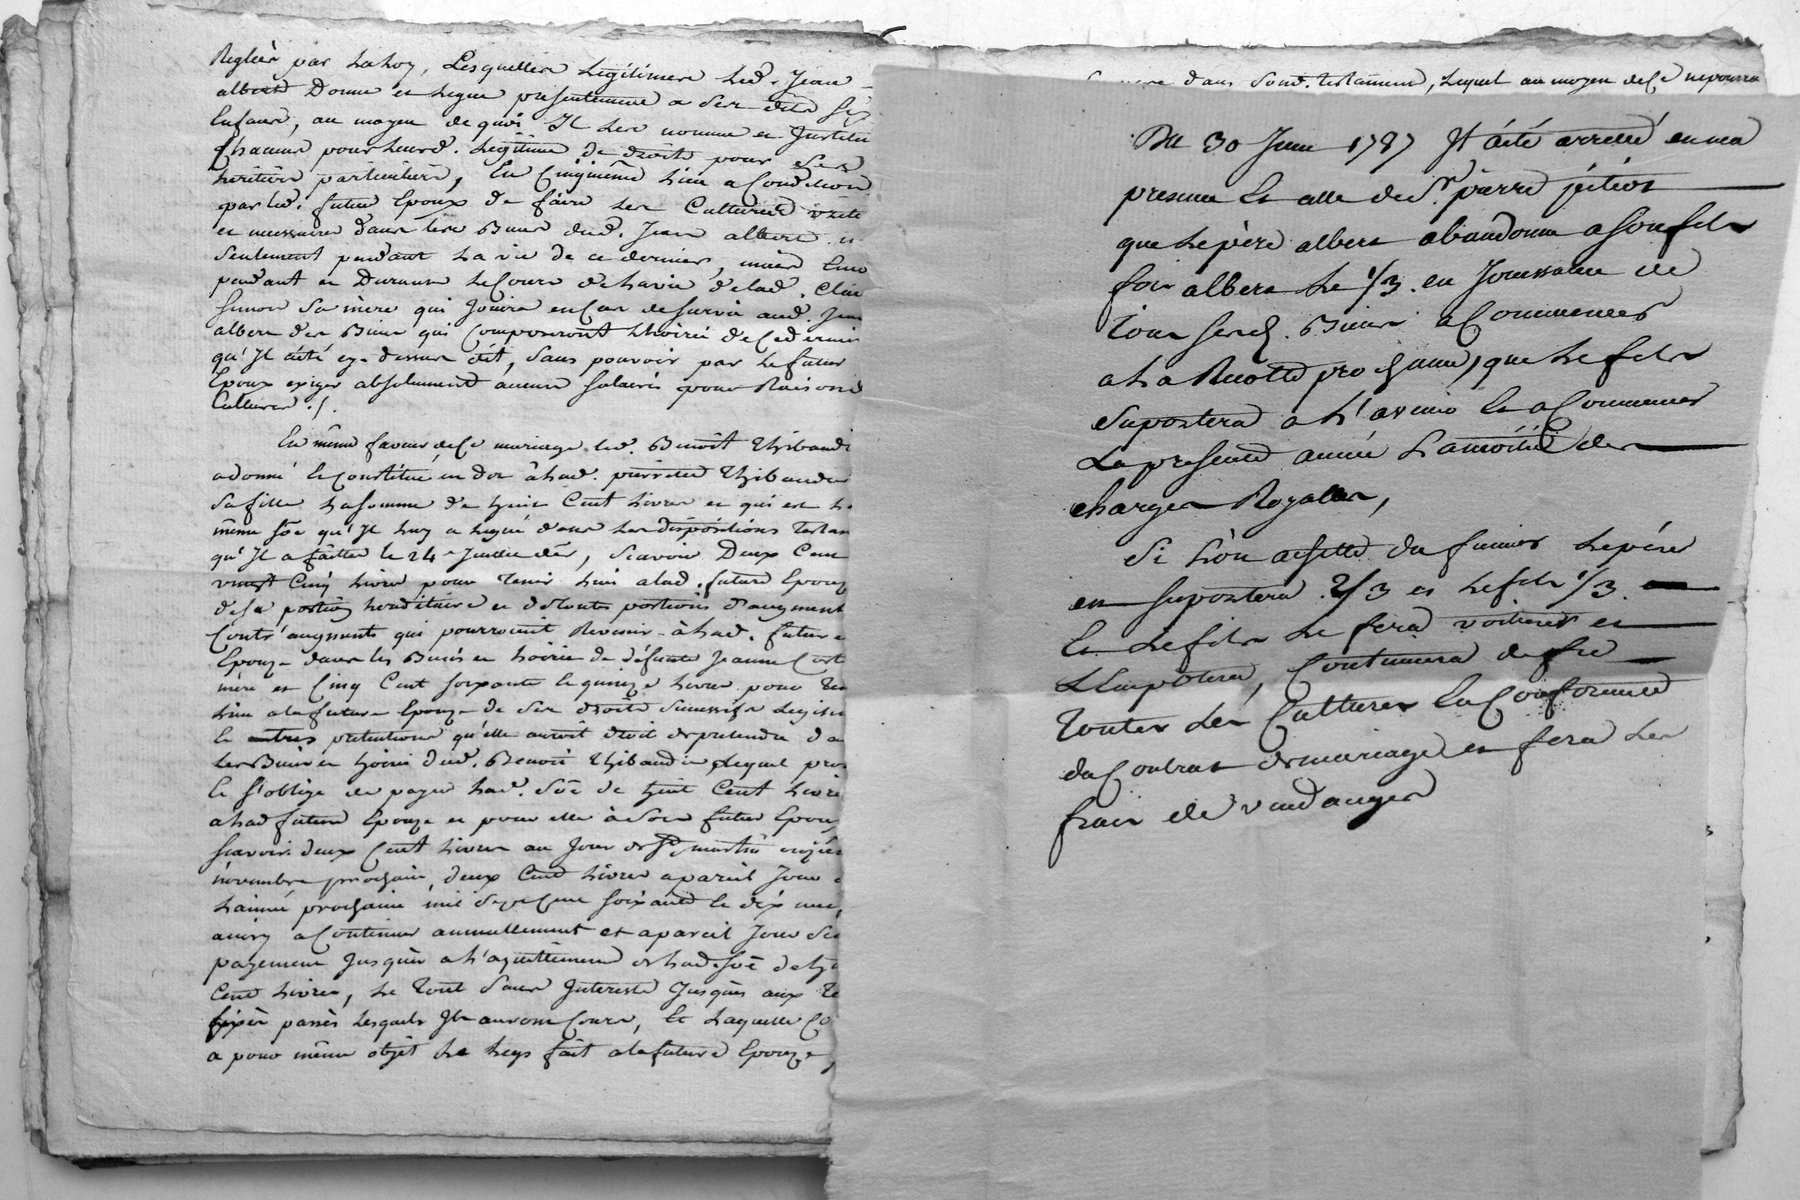 Reglées par la loy, Lesquelles legitimes led. Jean
albert Donne et legue presentement a ses dits six
Enfants, au moyen de quoi Il les nomme et Institue
chacun pour leurd. legitime de droits pour ses
heritiers particuliers, En Cinquieme lieu a Condition
par led. futur Epoux de faire les Cultures
et necessaires dans les Biens dud. Jean albert
seulement pendant la vie de ce dernier, mais
pendant et Durant le Cours de la vie de lad.
simon sa mère qui Jouira en Cas de survie aud. Jean
albert des Biens qui Composeront L'hoirie de Ce dernier
qu'Il a été cy-dessus dit, sans pouvoir par le futur
Epoux exiger absolument aucuns salaires pour Raison
Cultures ./.
En même faveur de Ce mariage led. Benoît Thibaudi
a donné et Constitué en dot à lad. pierrette Thibaudier
sa fille la somme de huit Cent livres et qui est la
même soe qu'Il luy a legué dans les dispositions testam
qu'Il a faittes le 24e Juillet der, scavoir Deux Cent
vingt Cinq livres pour tenir lieu a lad. future Epouze
de sa portion hereditaire et de toutes portions d'augment
Contr'augments qui pourroient Revenir à lad. future
Epouze dans les Biens et hoirie de défunte Jeanne
mère et Cinq Cent soixante et quinze livres pour tenir
lieu a la future Epouze de ses droits successifs Legitim
et autres pretentions qu'elle auroit droit de pretendre da
les Biens et hoirie dud. Benoît Thibaudier Lequel pro
et s'oblige de payer lad. soe de huit Cent livres
a lad future Epouze et pour elle à son futur Epoux
scavoir deux Cent livres au Jour de St martin onzie
novembre prochain, deux Cent livres a pareil Jour
L'année prochaine mil sept Cent soixante et dix neuf,
ainsy a Continuer annuellement et a pareil Jour
payement Jusques a l'aquittement de lad. soe de hui
Cent livres, le tout sans Interests Jusques aux te
fixés passés lesquels Ils auront Cours, Et Laquelle Co
a pour même objet le legs fait a la future Epouze,
dans sond. testament, Lequel au moyen de Ce ne pourra
Du 30 Juin 1787 Il a été arretté en ma
presence Et celle de Sr. pierre
que Le père albert abandonne a son fils
albert Le 1/3. en Jouissance de
tous sesd. Biens a Commencer
a La Recolte prochaine, que Le fils
suportera a L'avenir Et a Commencer
La presente année La moitié des
charges Royalles,
Si L'on achette du fumier Le père
en suportera 2/3 et Le fils 1/3.
Et Le fils Le fera voiturer et
L'Emploira, Continuera de fre
toutes Les Cultures En Conformité
du Contrat de mariage et fera Les
frais de vendanges